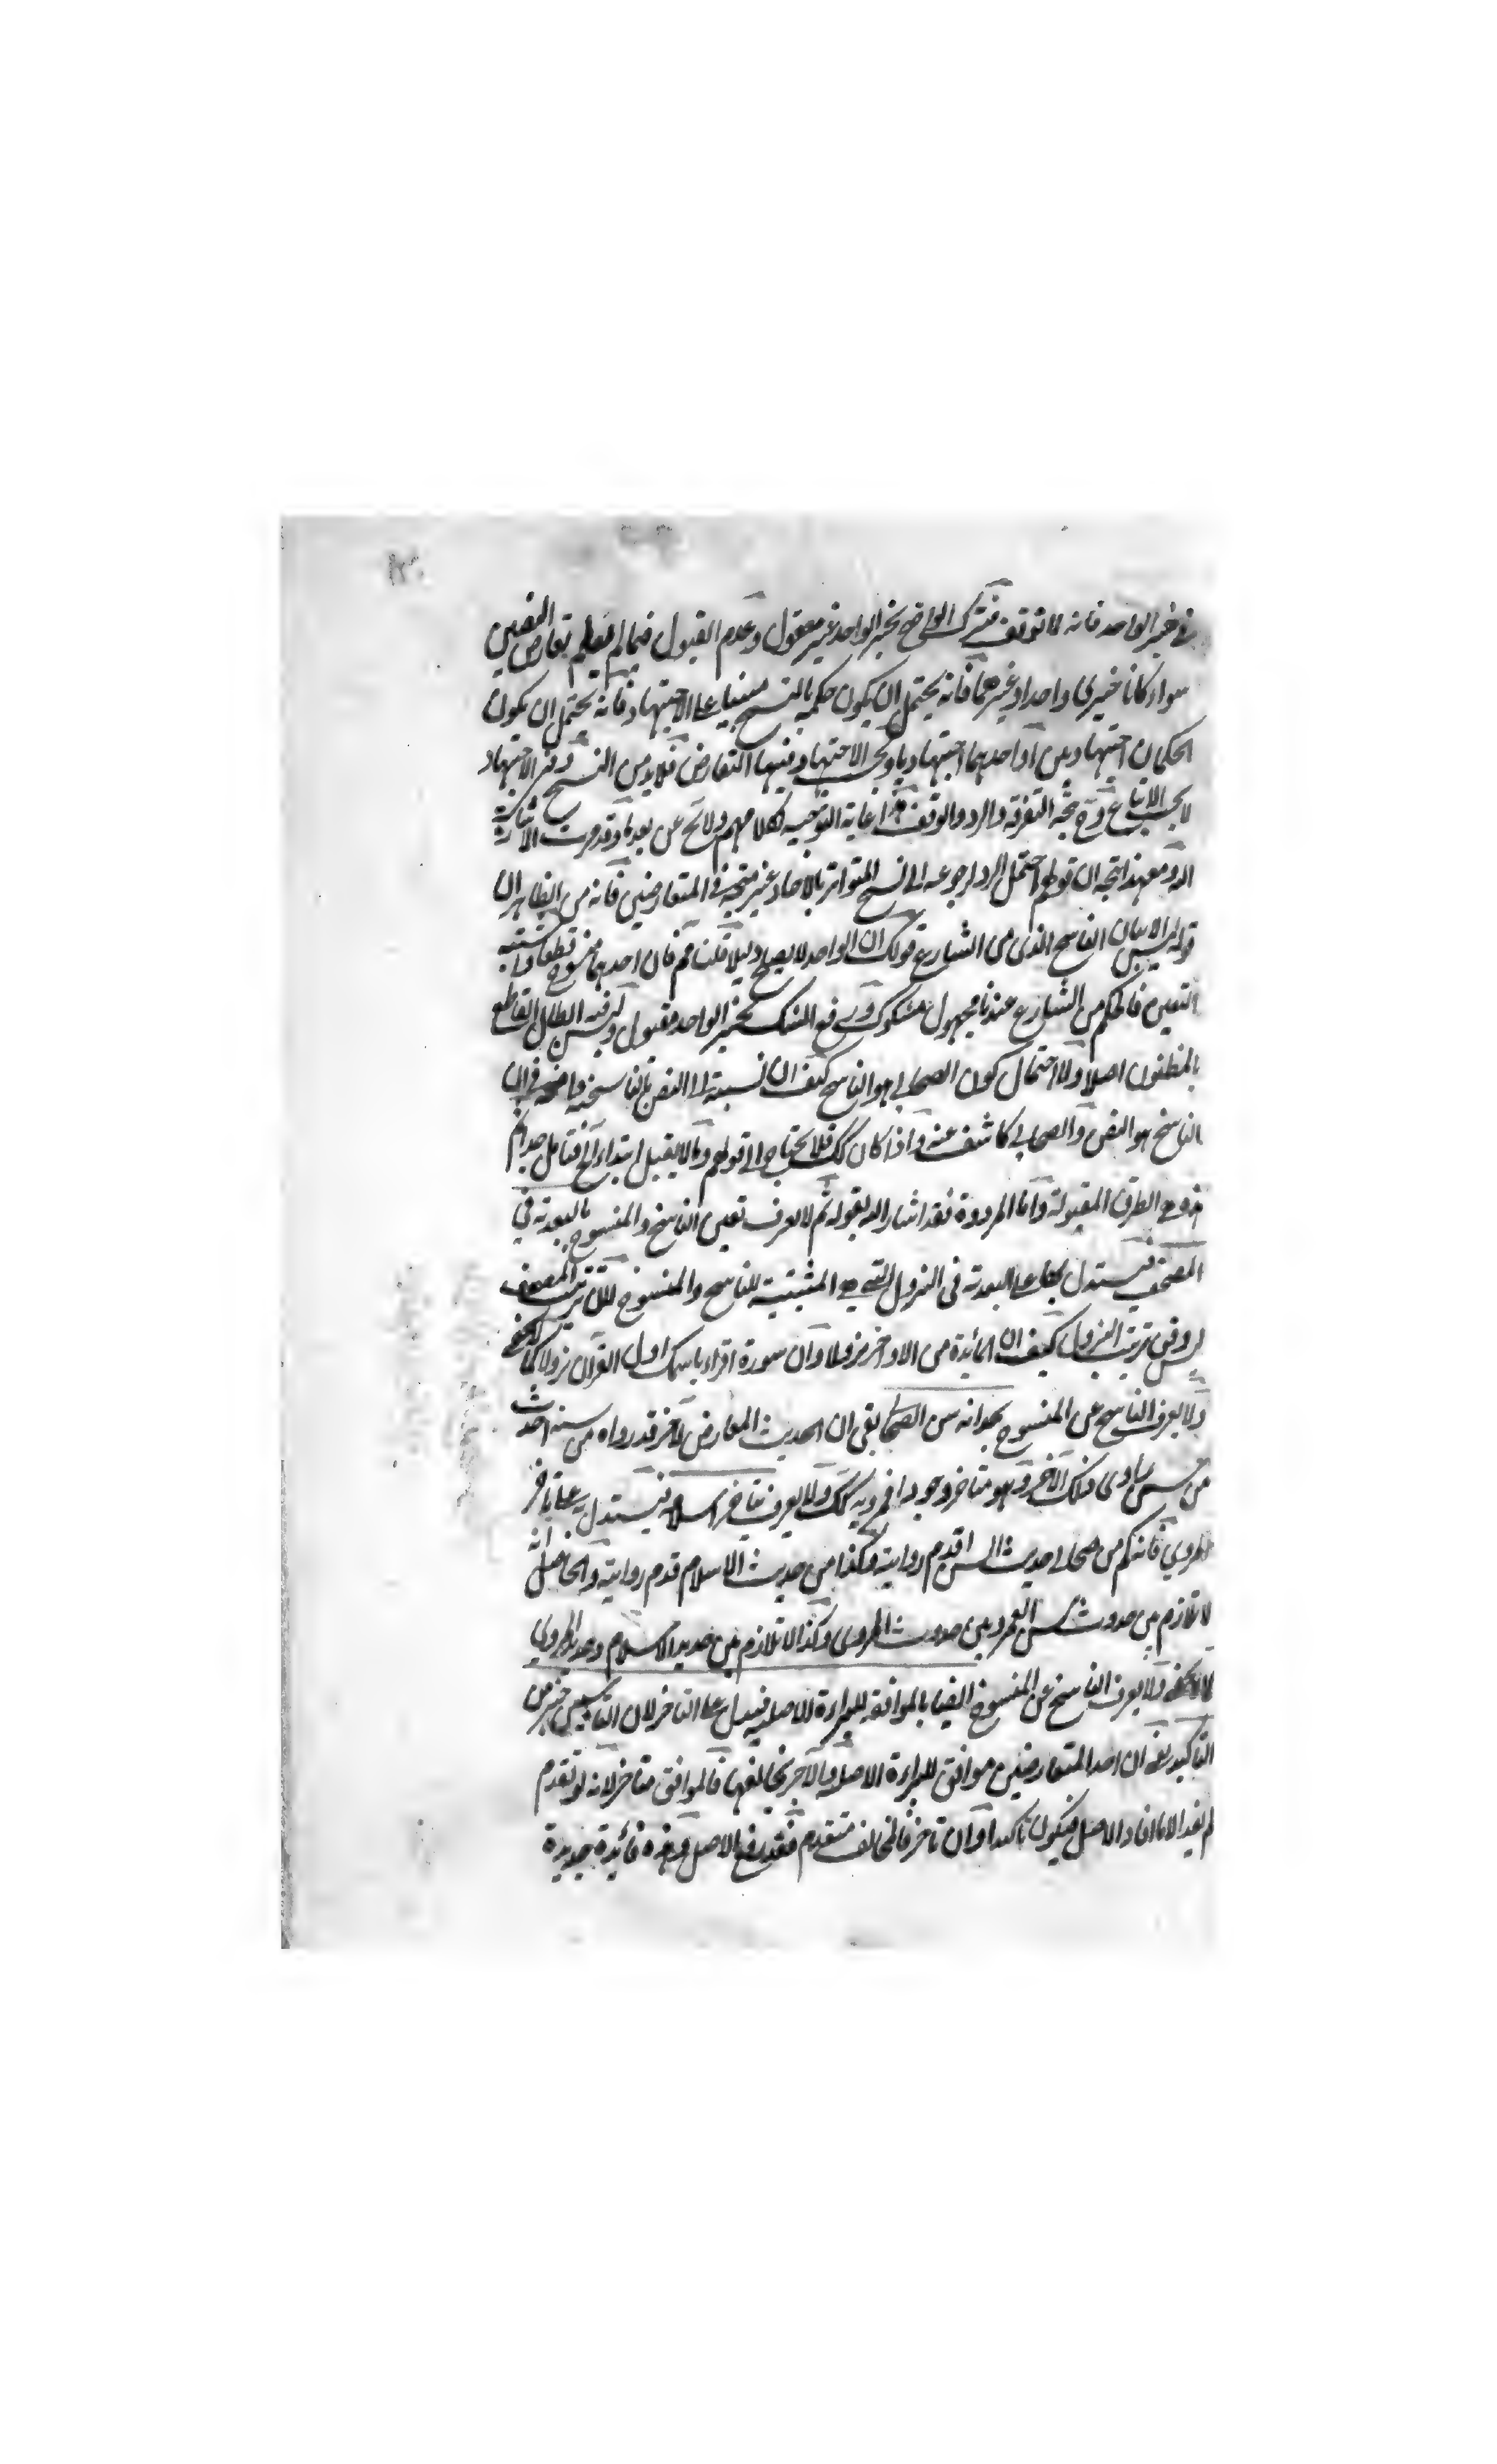 في خبر الواحد فانه لا توقف فترك الواضح بخبر الواحد غير معقول وعدم القبول فيما لم يعلم تعارض النصين
سواء كانا خبري واحد او غيرهما فانه يحتمل ان يكون حكمه بالنسخ مبنيا على الاجتهاد فانه يحتمل ان يكون
الحكمان اجتهاديين او احدهما اجتهاديا ويجب الاجتهاد فيهما التعارض فلا بد من النسخ وفي الاجتهاد
لا يجب الاتباع وح يتجه التفرقة والرد والوقف هذا غاية التوجيه لكلامهم ولا يخ عن بعد ما وقد مرت الاشارة
اليه ومع هذا يتجه ان قولهم احتمل الرد لرجوعه الى نسخ المتواتر بالاحاد غير متجه في المتعارضين فانه من الظاهر ان
قوله ليس الا بيان الناسخ الذي من الشارع قولك ان الواحد لا يصلح دليلا قلنا نعم فان احدهما منسوخ قطعا واشتبه
التعيين فالحكم من الشارع عندنا مجهول مشكوك ورفع الشك بخبر الواحد مقبول وليس فيه ابطال القاطع
بالمظنون اصلا ولا احتمال كون الصحابي هو الناسخ كيف ان نسبته الى النص بالناسخية واضحة في ان
الناسخ هو النص والصحابي كاشف عنه واذا كان كك فلا يحتاج الى قولهم وما لا يقبل ابتداء الخ فتامل جدا ثم
هذه هي الطرق المقبولة واما المردودة فقد اشار اليه بقوله ثم لا يعرف تعيين الناسخ والمنسوخ بالبعدية في
المصحف فيستدل بها على البعدية في النزول التي هي المثبتة للناسخ والمنسوخ لان ترتيب المصحف
ليس وفق ترتيب النزول كيف ان المائدة من الاواخر نزولا وان سورة اقراء باسمك اول القران نزولا كما لا يخفى
ولا يعرف الناسخ عن المنسوخ بحداثة سن الصحابي ان الحديث المعارض لاخر قد رواه من سنه احدث
من سن راوى ذلك الاخر وهو متاخر وجودا فمرويه كك ولا يعرف بتاخر اسلامه فيستدل به على تاخر
المروي فانه كم من صحابي حديث السن اقدم رواية وكذا من حديث الاسلام قدم روايته والحاصل انه
لا تلازم بين حدوث سن العمر وبين حدوث المروي وكذا لا تلازم بين حديد الاسلام وحديد المروي
كما لا يخفى ولا يعرف الناسخ عن المنسوخ ايضا بالموافقة للبراءة الاصلية فيدل على التاخر لان التاسيس خير من
التاكيد يعني ان احد المتعارضين موافق للبراءة الاصلية والاخر يخالفها فالموافق متاخر لانه لو تقدم
لم يفد الا ما افاد الاصل فيكون تاكيدا وان تاخر فالمخالف متقدم فقد رفع الاصل وهذه فائدة جديدة